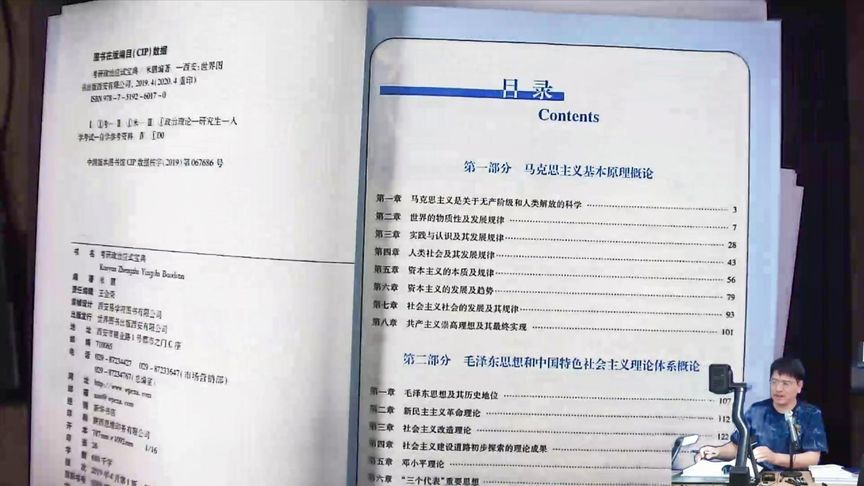 图书在版编目(CIP)数据
考研政治应试宝典 / 米鹏编著. —西安:世界图
书出版西安有限公司, 2019.4(2020.4重印)
ISBN 978-7-5192-6017-0
学考试—自学参考资料 Ⅳ. ①D0
中国版本图书馆CIP数据核字(2019)第067686号
书 名 考研政治应试宝典
Kaoyan Zhengzhi Yingshi Baodian
编 著 米 鹏
责任编辑 王会荣
出版发行 世界图书出版西安有限公司
邮 编 710065
电 话 029-87234427 029-87233647(市场营销部)
029-87234767(总编室)
经 销 新华书店
开 本 787mm×1092mm 1/16
目 录
Contents
第一部分 马克思主义基本原理概论
第一章 马克思主义是关于无产阶级和人类解放的科学 3
第二章 世界的物质性及发展规律 7
第三章 实践与认识及其发展规律 28
第四章 人类社会及其发展规律 43
第五章 资本主义的本质及规律 56
第六章 资本主义的发展及趋势 79
第七章 社会主义社会的发展及其规律 93
第八章 共产主义崇高理想及其最终实现 101
第二部分 毛泽东思想和中国特色社会主义理论体系概论
第一章 毛泽东思想及其历史地位 107
第二章 新民主主义革命理论 112
第三章 社会主义改造理论 122
第四章 社会主义建设道路初步探索的理论成果
第五章 邓小平理论
第六章 “三个代表”重要思想